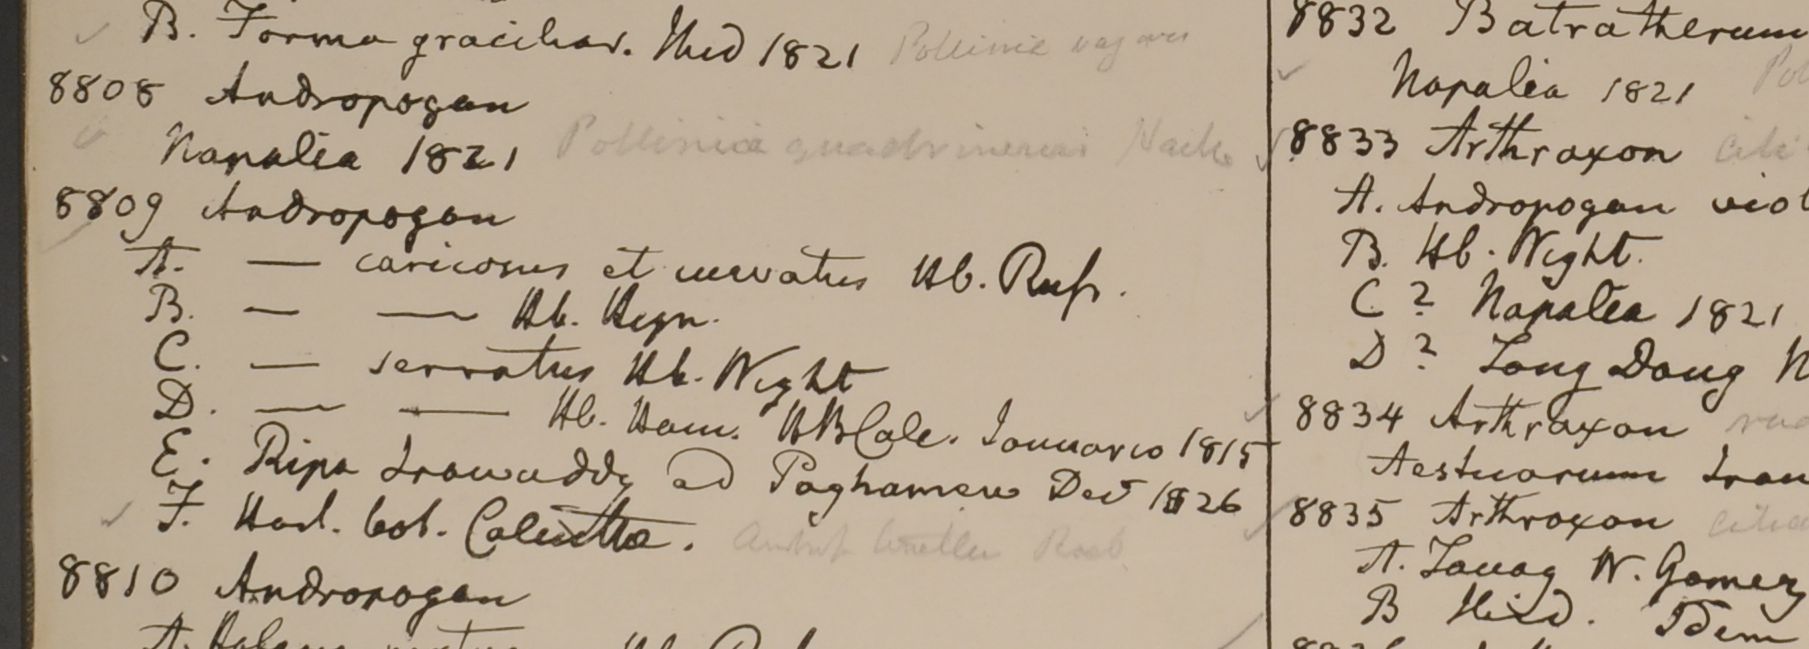 B. Forma gracilior. Ibid 1821
8808 Andropogon
Napalia 1821 Pollinia
8809 Andropogon
A. — caricosus et curvatus Hb. Rufs.
B. — — Hb. Heyn.
C. — serratus Hb. Wight
D. — — Hb. Ham. HBCalc. Januario 1815
E. Ripa Irawaddy ad Paghamew Dec 1826
F. Hort. bot. Calcutta.
8810 Andropogon
8832 Batratherum
Napalia 1821
8833 Arthraxon
A. Andropogon viol
B. Hb. Wight.
C? Napalia 1821
D? Tong Dong N
8834 Arthraxon
Aestuarium Iraw
8835 Arthraxon
A. Tavoy W. Gomez
B Ibid. Idem